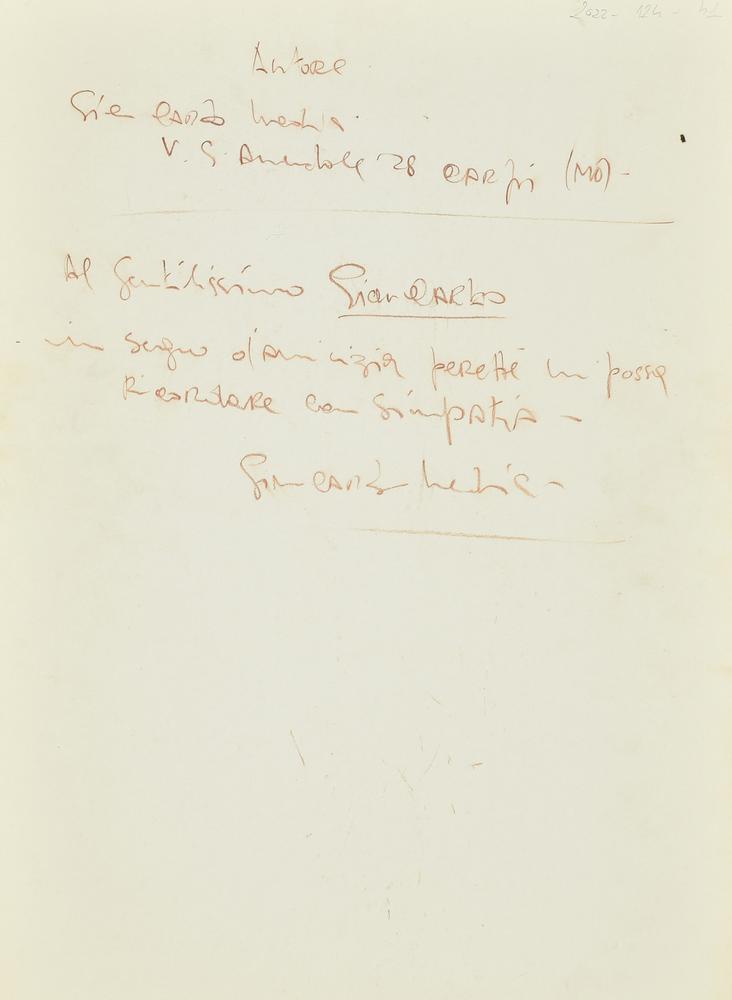 2022 - 124 - 41
Autore
Gian Carlo
V. G. 28 CARPI (MO) -
Al Gentilissimo Giancarlo
in segno d'amicizia perché mi possa
Ricordare con simpatia -
Gian Carlo